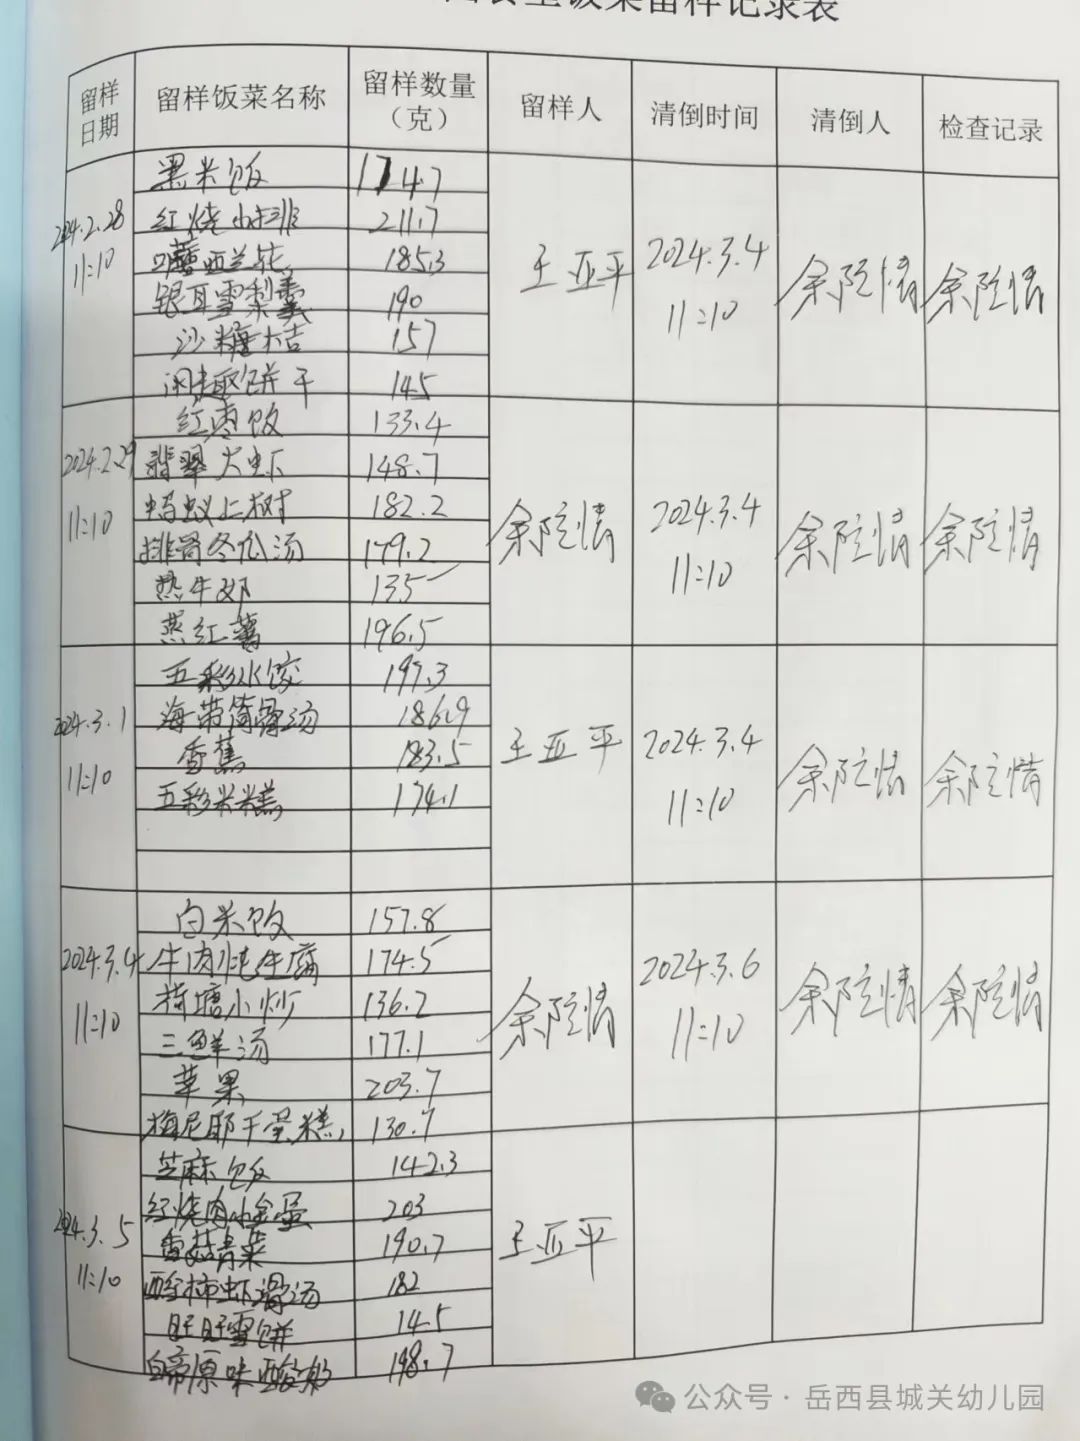 饭菜留样记录表
留样日期 留样饭菜名称 留样数量（克） 留样人 清倒时间 清倒人 检查记录
2024.2.28 11:10 王亚平 2024.3.4 11:10
黑米饭 174.7
红烧小排 211.7
口蘑西兰花 185.3
银耳雪梨羹 190
沙糖桔 157
闲趣饼干 145
2024.2.29 11:10 2024.3.4 11:10
红枣饭 133.4
翡翠大虾 148.7
蚂蚁上树 182.2
排骨冬瓜汤 179.2
热牛奶 135
蒸红薯 196.5
2024.3.1 11:10 王亚平 2024.3.4 11:10
五彩水饺 197.3
海带筒骨汤 186.9
香蕉 183.5
五彩米糕 174.1
2024.3.4 11:10 2024.3.6 11:10
白米饭 157.8
牛肉炖生腐 174.5
荷塘小炒 136.2
三鲜汤 177.1
苹果 203.7
梅尼耶干蛋糕 130.7
2024.3.5 11:10 王亚平
芝麻饭 142.3
红烧肉小金蛋 203
香菇青菜 190.7
西红柿虾滑汤 182
旺旺雪饼 14.5
白帝原味酸奶 198.7
公众号·岳西县城关幼儿园